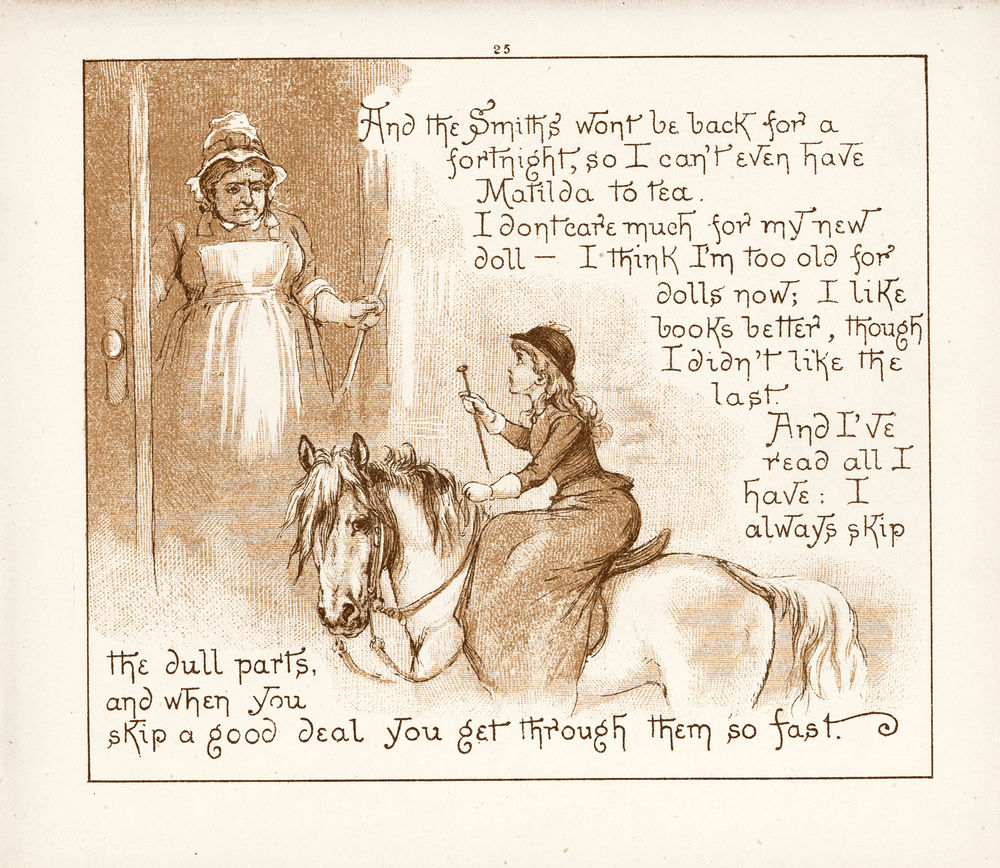 25
And the Smiths wont be back for a
fortnight, so I can't even have
Matilda to tea.
I dont care much for my new
doll — I think I'm too old for
dolls now; I like
books better, though
I didn't like the
last.
And I've
read all I
have: I
always skip
the dull parts,
and when you
skip a good deal you get through them so fast.